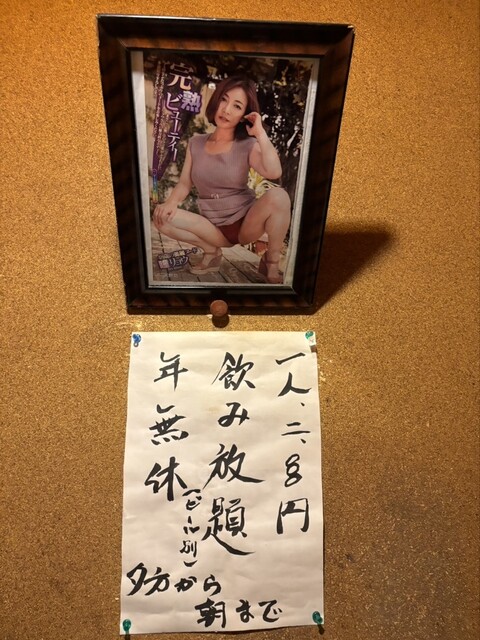 完熟
ビューティー
一人、二、8円
飲み放題
(ビール別)
年無休
夕方から
朝まで